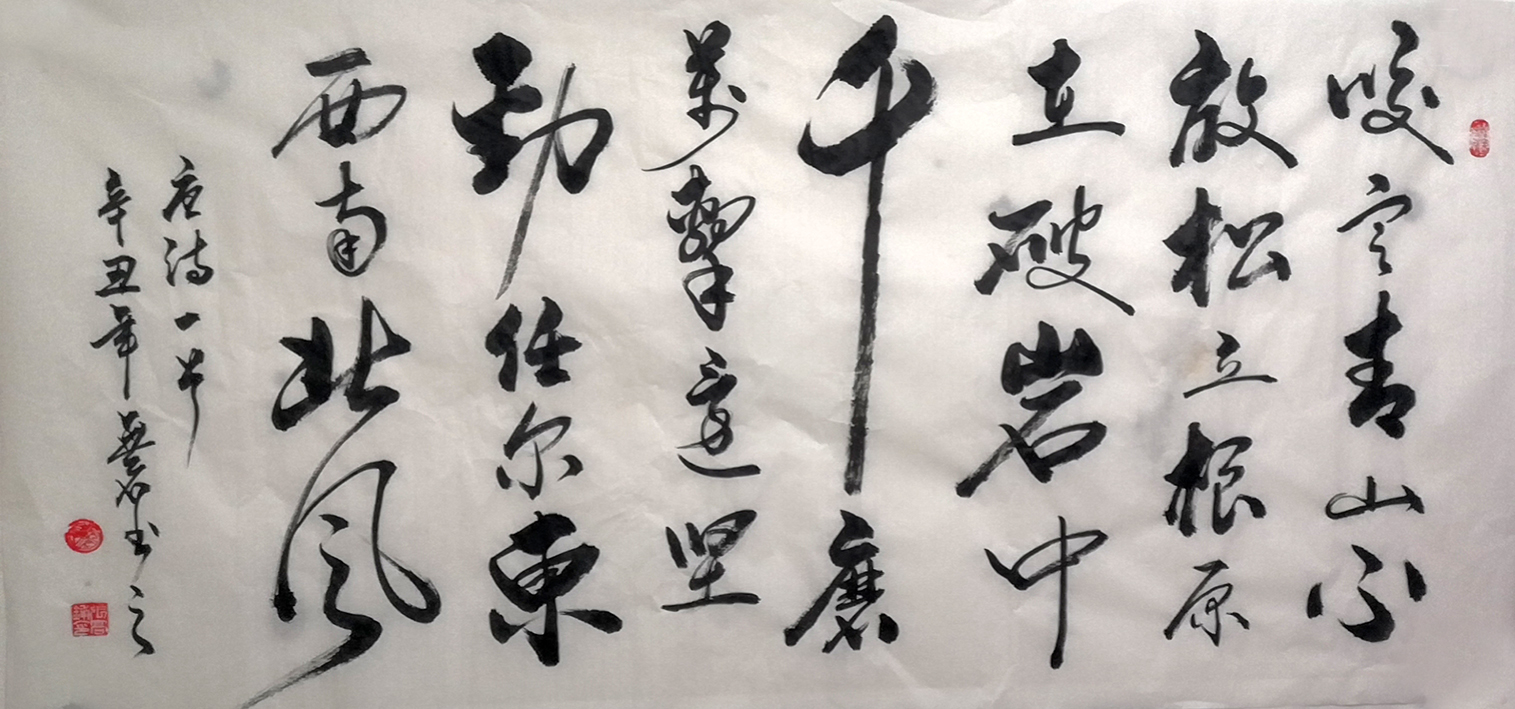 咬定青山不
放松立根原
在破岩中
千磨
萬擊還坚
劲任尔東
西南北风
唐诗一首
辛丑年书之